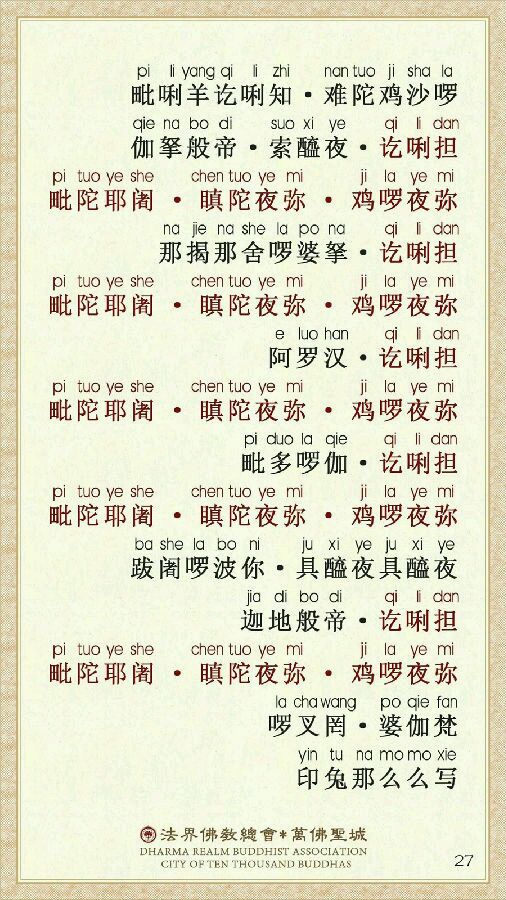 pi li yang qi li zhi nan tuo ji sha la
毗唎羊讫唎知·难陀鸡沙啰
qie na bo di suo xi ye qi li dan
伽拏般帝·索醯夜·讫唎担
pi tuo ye she chen tuo ye mi ji la ye mi
毗陀耶阇·瞋陀夜弥·鸡啰夜弥
na jie na she la po na qi li dan
那揭那舍啰婆拏·讫唎担
pi tuo ye she chen tuo ye mi ji la ye mi
毗陀耶阇·瞋陀夜弥·鸡啰夜弥
e luo han qi li dan
阿罗汉·讫唎担
pi tuo ye she chen tuo ye mi ji la ye mi
毗陀耶阇·瞋陀夜弥·鸡啰夜弥
pi duo la qie qi li dan
毗多啰伽·讫唎担
pi tuo ye she chen tuo ye mi ji la ye mi
毗陀耶阇·瞋陀夜弥·鸡啰夜弥
ba she la bo ni ju xi ye ju xi ye
跋阇啰波你·具醯夜具醯夜
jia di bo di qi li dan
迦地般帝·讫唎担
pi tuo ye she chen tuo ye mi ji la ye mi
毗陀耶阇·瞋陀夜弥·鸡啰夜弥
la cha wang po qie fan
啰叉罔·婆伽梵
yin tu na mo mo xie
印兔那么么写
法界佛教總會*萬佛聖城
DHARMA REALM BUDDHIST ASSOCIATION
CITY OF TEN THOUSAND BUDDHAS
27